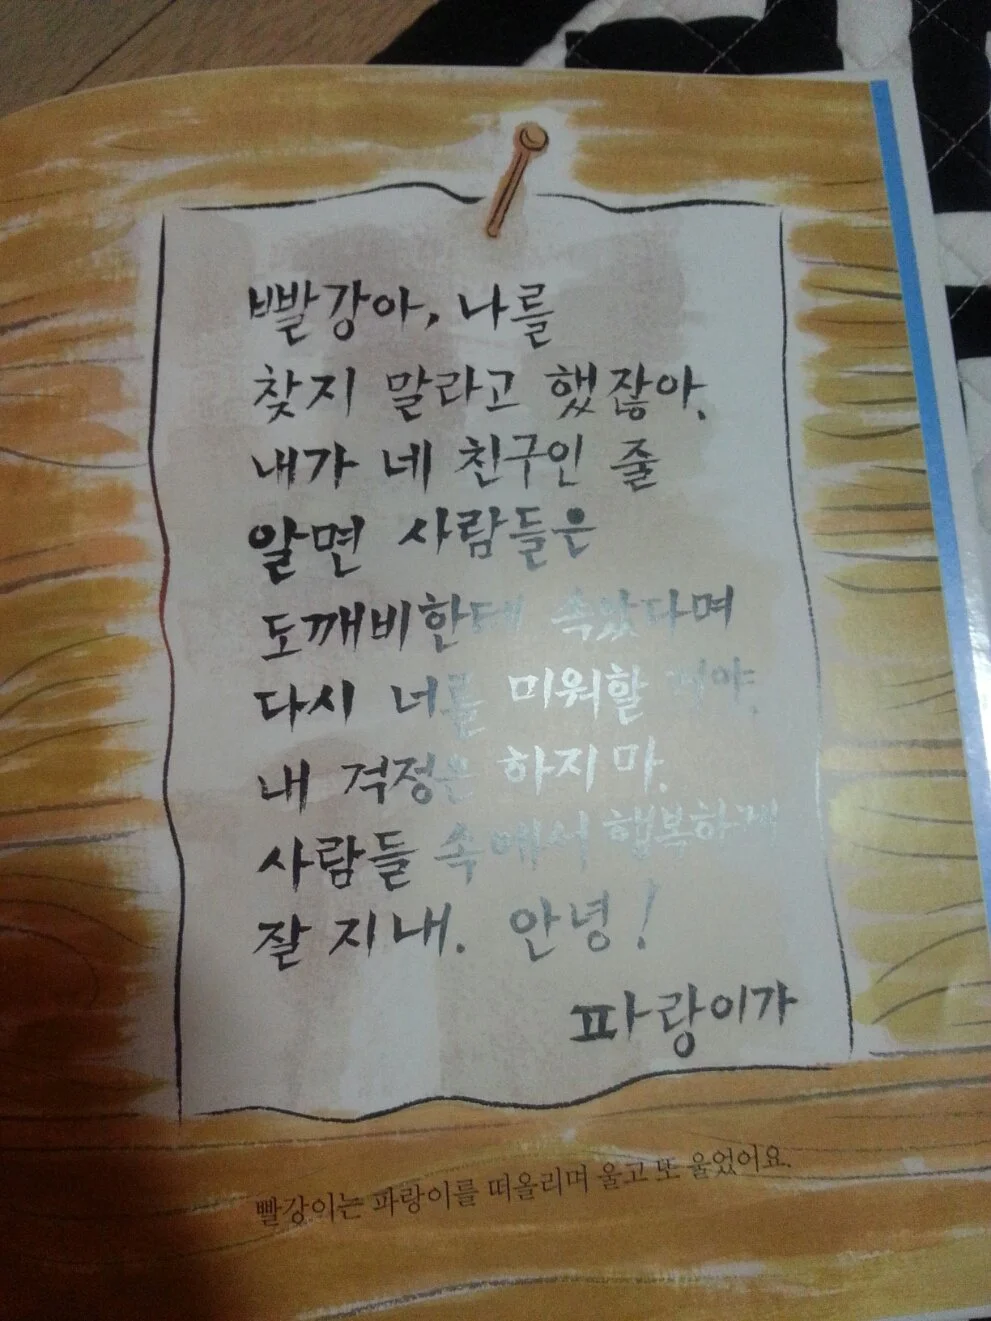 빨강아, 나를
찾지 말라고 했잖아.
내가 네 친구인 줄
알면 사람들은
도깨비한테 속았다며
다시 너를 미워할 거야.
내 걱정은 하지 마.
사람들 속에서 행복하게
잘 지내. 안녕!
파랑이가
빨강이는 파랑이를 떠올리며 울고 또 울었어요.